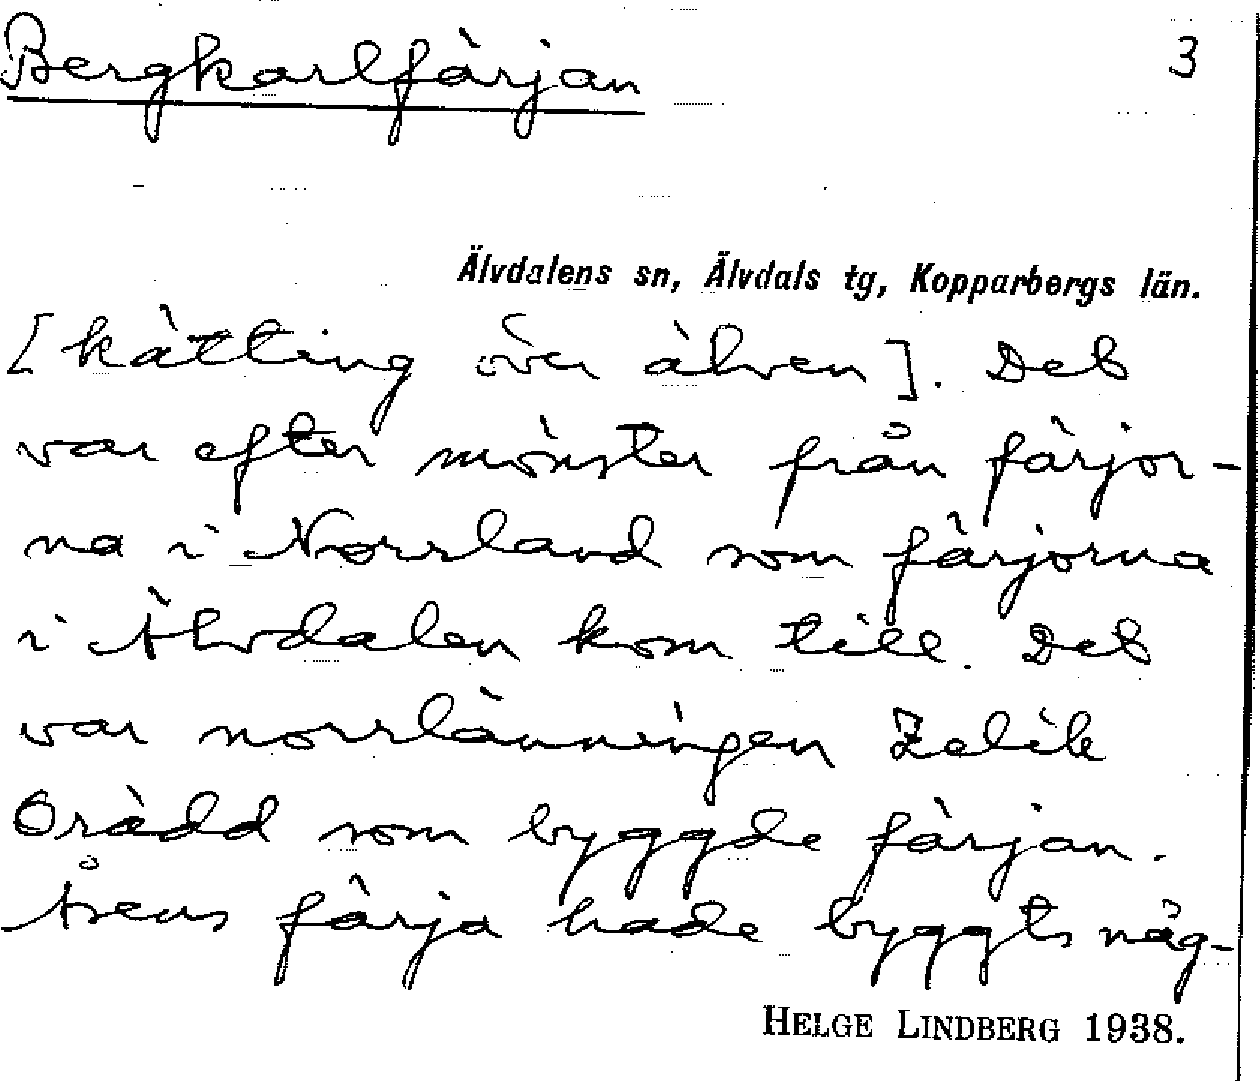 Bergkarlfärjan 3
Älvdalens sn, Älvdals tg, Kopparbergs län.
[kätting över älven]. Det
var efter mönster från färjor-
na i Norrland som färjorna
i Älvdalen kom till. Det
var norrlänningen
Orädd som byggde färjan.
Åsens färja hade byggts någ-
HELGE LINDBERG 1938.